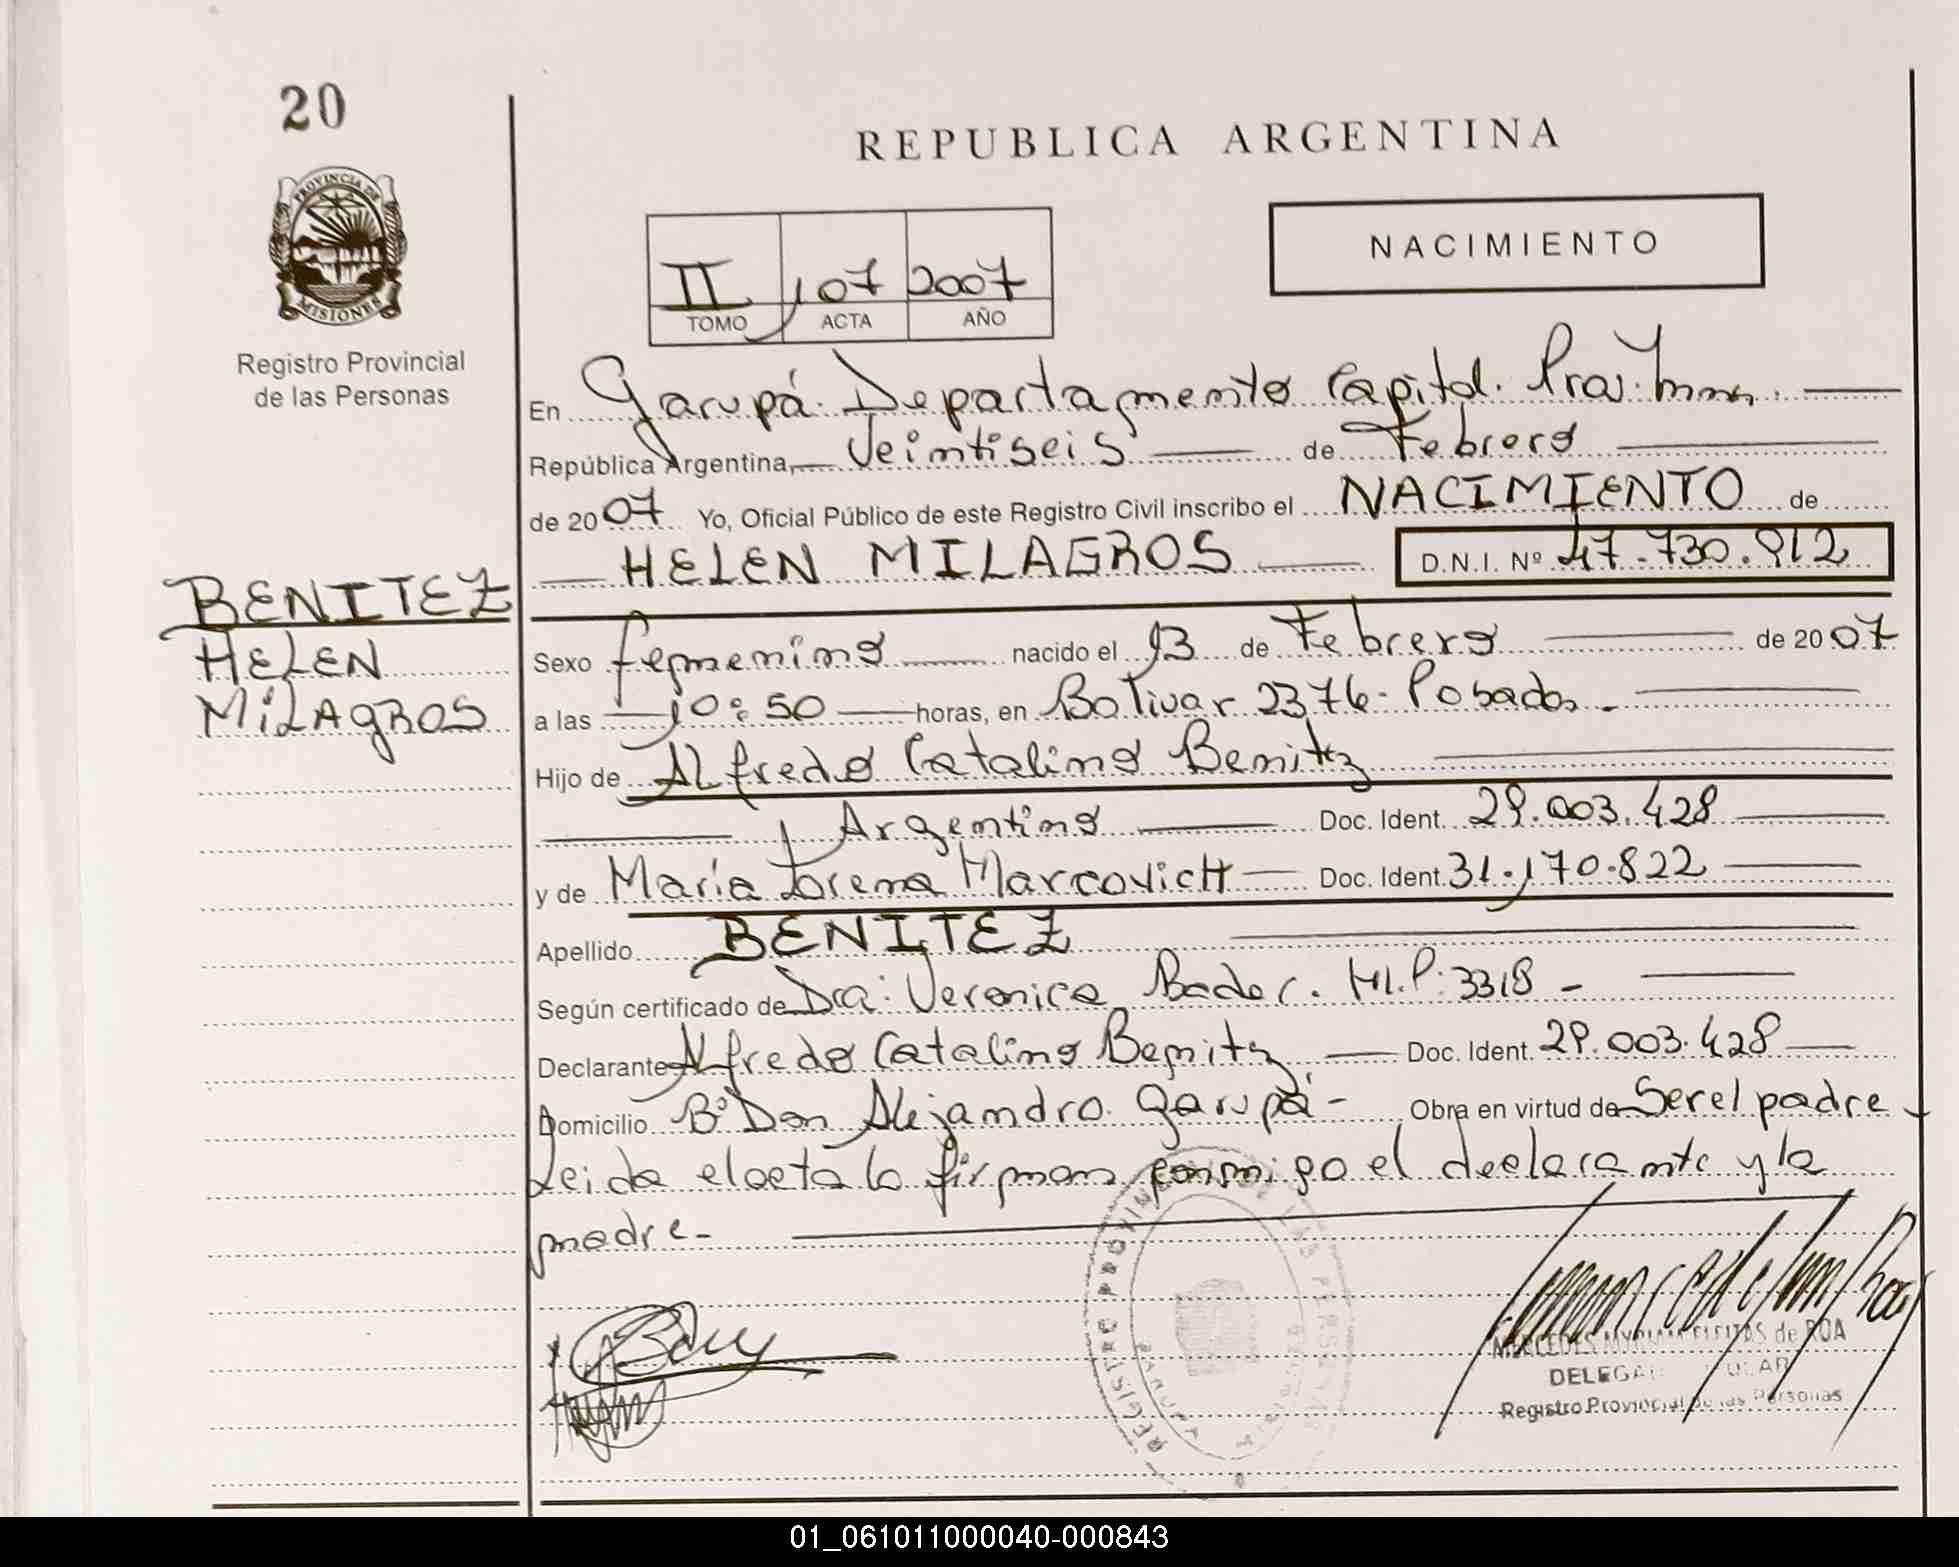 20
REPUBLICA ARGENTINA
PROVINCIA DE
MISIONES
Registro Provincial
de las Personas
NACIMIENTO
II 107 2007
TOMO ACTA AÑO
En Garupá. Departamento Capital. Prov.
República Argentina, Veintiseis de Febrero
de 2007 Yo, Oficial Público de este Registro Civil inscribo el NACIMIENTO de
HELEN MILAGROS D.N.I. Nº 47.730.912
BENITEZ
HELEN
MILAGROS
Sexo femenino nacido el 13 de Febrero de 2007
a las 10:50 horas, en Bolivar 2376- Posadas.
Hijo de Alfredo Catalino Benitez
Argentino Doc. Ident. 29.003.428
y de María Lorena Marcovich Doc. Ident. 31.170.822
Apellido BENITEZ
Según certificado de Dra: Veronica Bader. M.P: 3318 -
Declarante Alfredo Catalino Benitez Doc. Ident. 29.003.428
Domicilio Bº Don Alejandro. Garupá- Obra en virtud de Ser el padre
Leida el acta la firman conmigo el declarante y la
madre-
REGISTRO PROVINCIAL DE LAS PERSONAS
MERCEDES MYRIAM FLEITAS de ROA
DELEGADA TITULAR
Registro Provincial de las Personas
01_061011000040-000843